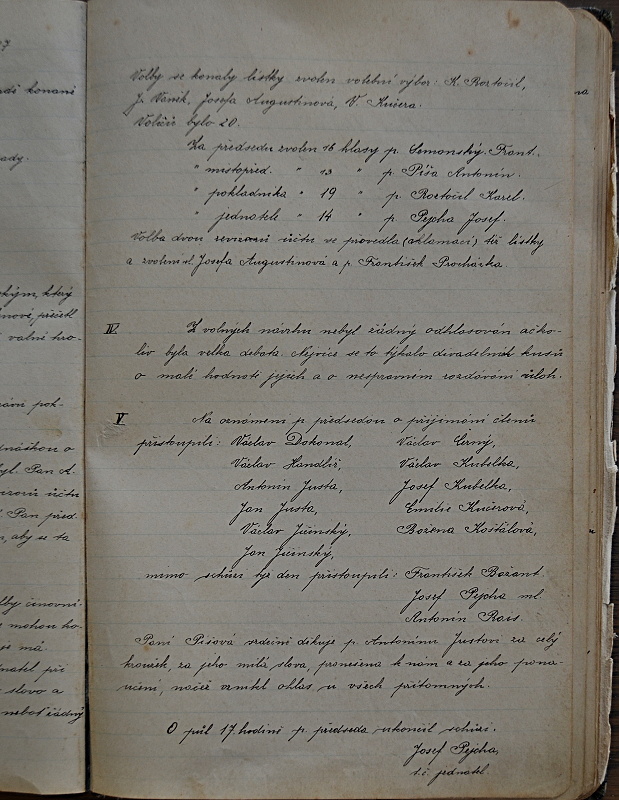 Volby se konaly lístky zvolen volební výbor: K. Roztočil,
J. Vaněk, Josefa Augustinová, V. Kučera.
Voličů bylo 20.
Za předsedu zvolen 16 hlasy p. Cemonský Frant.
" místopřed. " 13 " p. Píša Antonín.
" pokladníka " 19 " p. Roztočil Karel.
" jednatele " 14 " p. Pejcha Josef.
Volba dvou revisorů účtu se provedla (aklamací) též lístky
a zvoleni sl. Josefa Augustinová a p. František Procházka.
IV. Z volných návrhu nebyl žádný odhlasován ačko-
liv byla velká debata. Nejvíce se to týkalo divadelních kusů
o malé hodnotě jejich a o nesprávném rozdávání úloh.
V. Na oznámení p. předsedou o přijímání členů
přistoupili: Václav Dokonal, Václav Černý,
Václav Handlíř, Václav Kubelka,
Antonín Justa, Josef Kubelka,
Jan Justa, Emilie Kučerová,
Václav Jičínský, Božena Košťálová,
Jan Jičínský,
mimo schůzi týž den přistoupili: František Božant.
Josef Pejcha ml.
Antonín Rais.
Paní Píšová srdečně děkuje p. Antonínu Justovi za celý
kroužek, za jeho milá slova, pronešena k nám a za jeho pona-
učení, načež vznikl ohlas u všech přítomných.
O půl 17. hodině p. předseda ukončil schůzi.
Josef Pejcha,
t.č. jednatel.